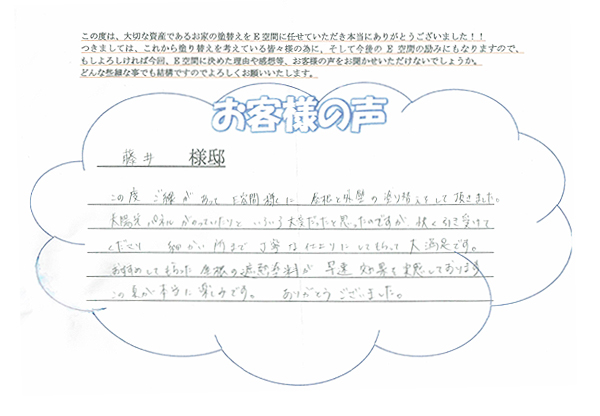 この度は、大切な資産であるお家の塗替えをE空間に任せていただき本当にありがとうございました！！
つきましては、これから塗り替えを考えている皆々様の為に、そして今後のE空間の励みにもなりますので、
もしよろしければ今回、E空間に決めた理由や感想等、お客様の声をお聞かせいただけないでしょうか。
どんな些細な事でも結構ですのでよろしくお願いいたします。
お客様の声
藤井 様邸
この度 ご縁があって E空間様に 屋根と外壁の塗り替えをして頂きました。
太陽光パネルがのっていたりと いろいろ大変だったと思ったのですが 快く引き受けて
くださり 細かい所まで丁寧な仕上りにしてもらって大満足です。
おすすめしてもらった屋根の遮熱塗料が 早速 効果を実感しております
この夏が本当に楽しみです。 ありがとうございました。